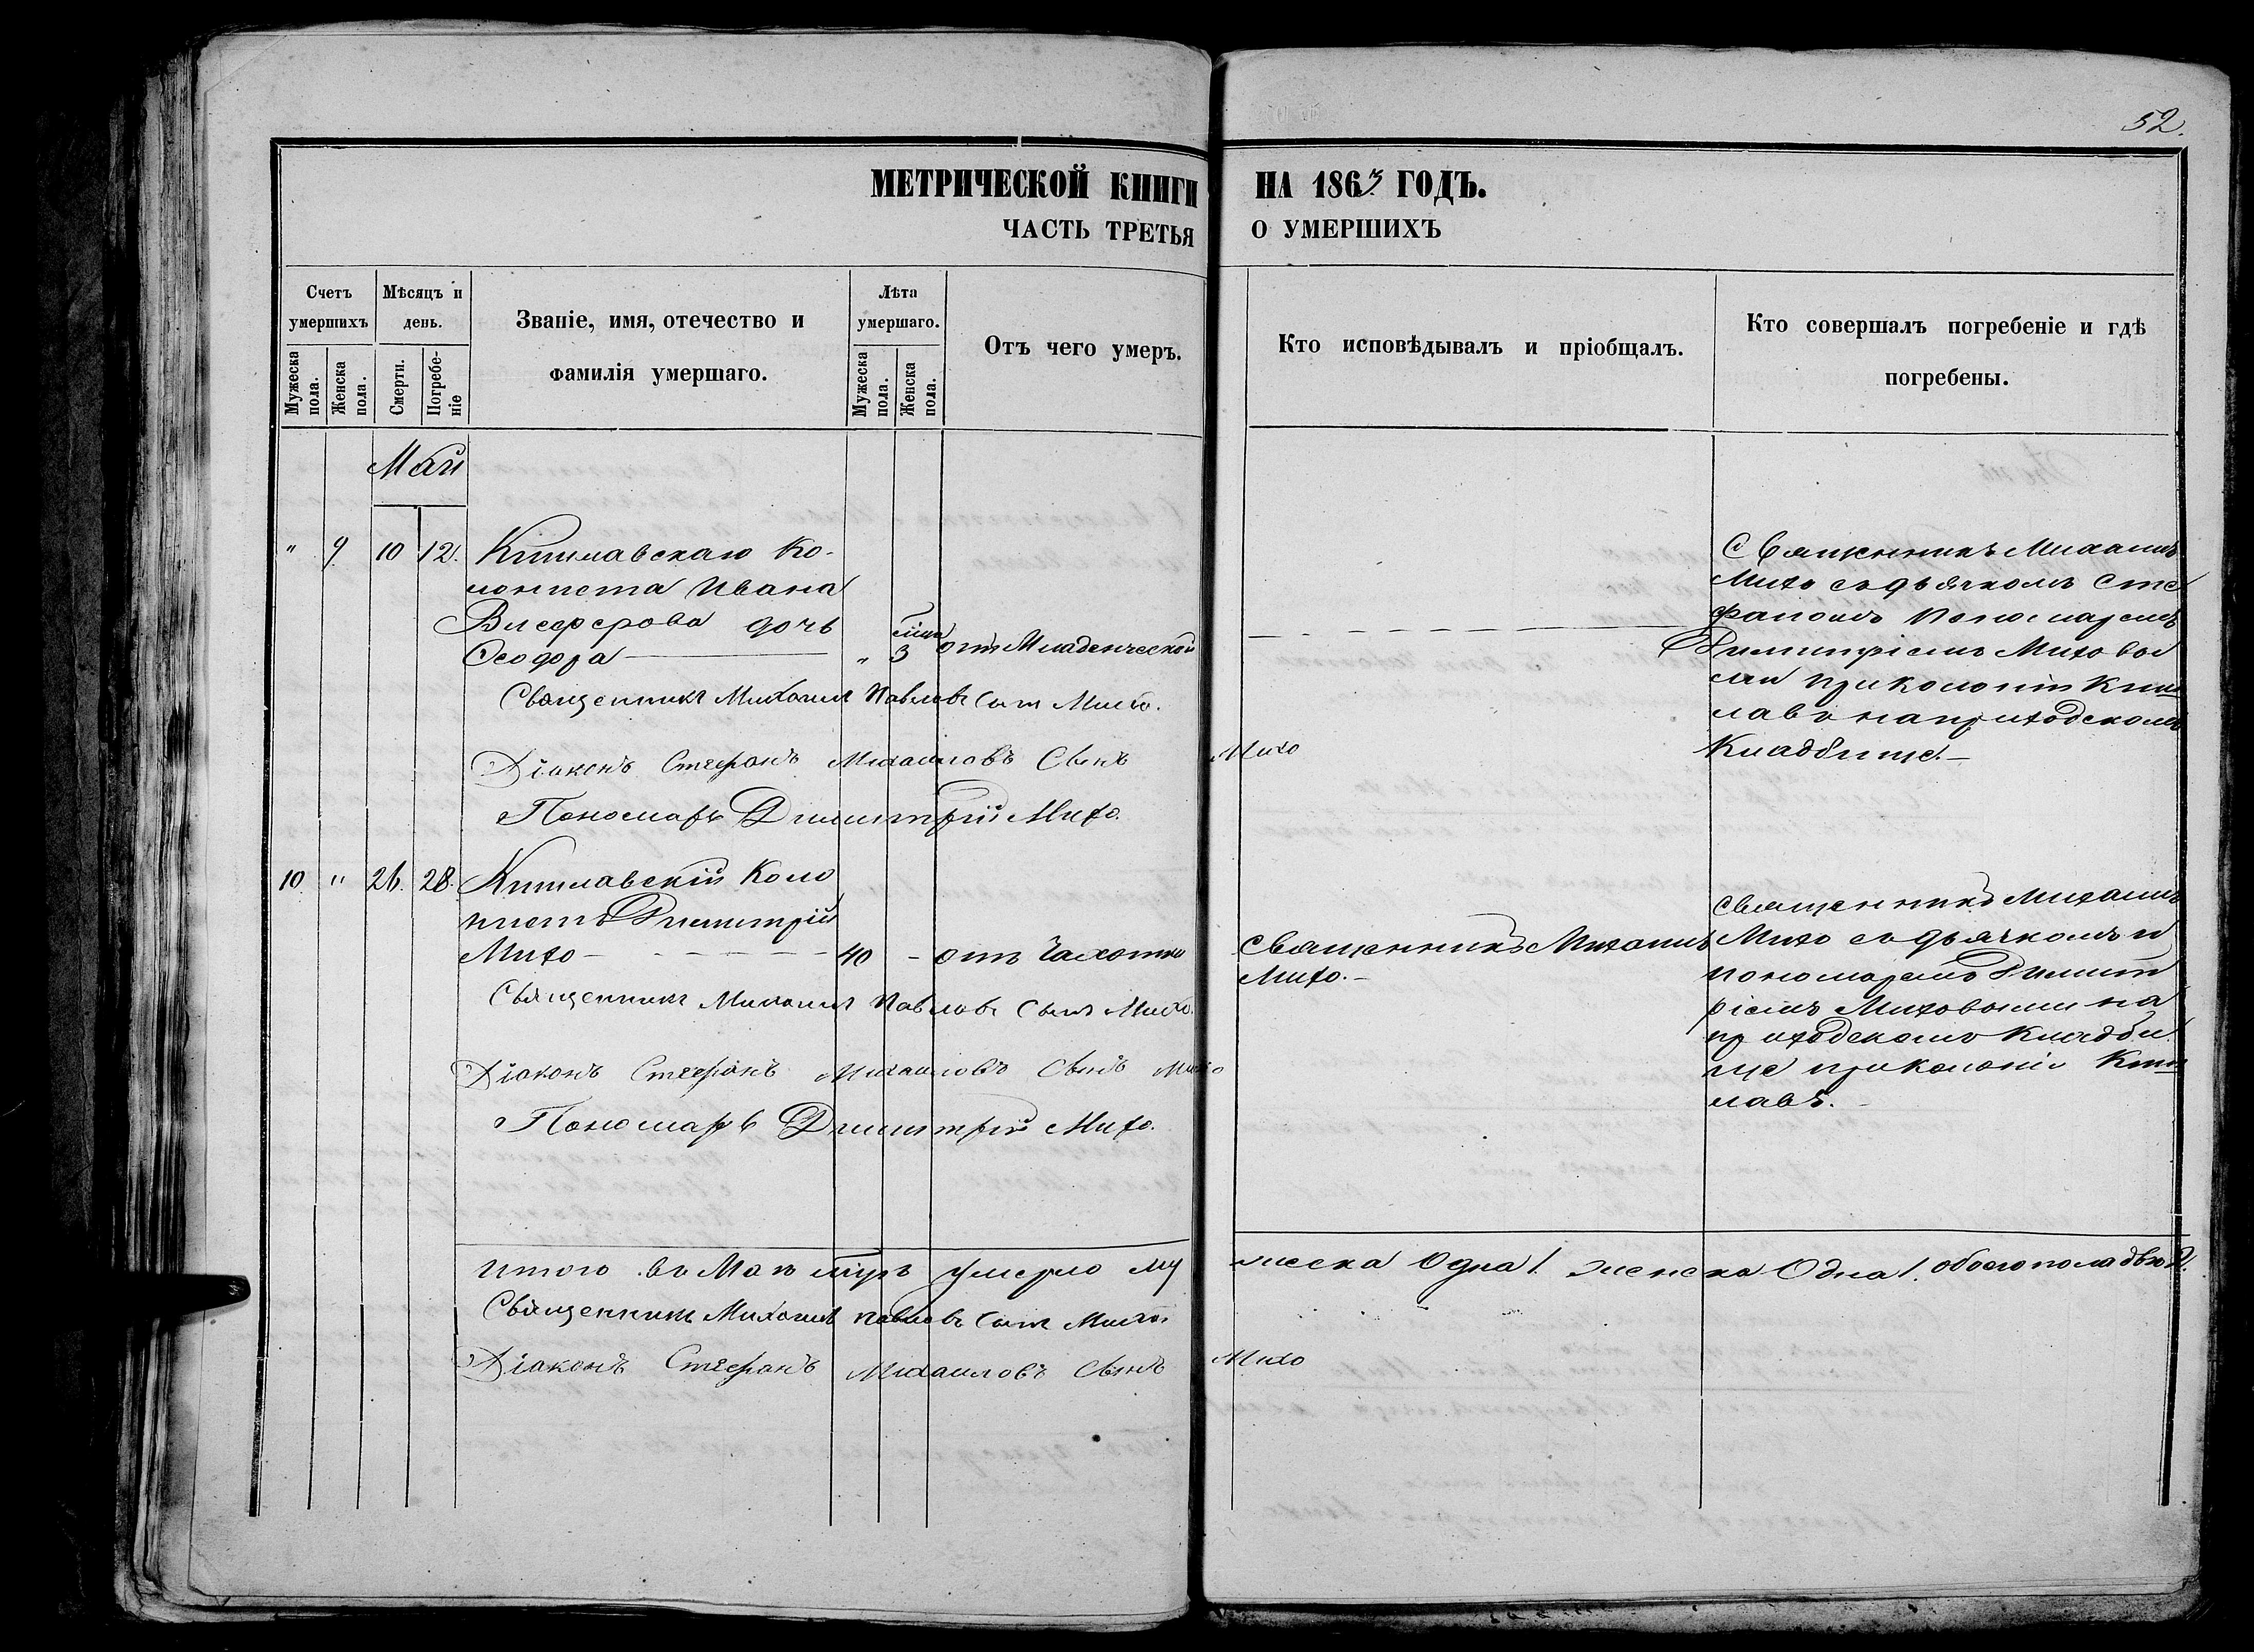 52.
МЕТРИЧЕСКОЙ КНИГИ НА 1863 ГОДЪ.
ЧАСТЬ ТРЕТЬЯ О УМЕРШИХЪ
Счетъ умершихъ
Мужеска пола.
Женска пола.
Мѣсяцъ и день.
Смерти.
Погребе-ніе
Званіе, имя, отечество и
фамилія умершаго.
Лѣта умершаго.
Мужеска пола.
Женска пола.
Отъ чего умеръ.
Кто исповѣдывалъ и пріобщалъ.
Кто совершалъ погребеніе и гдѣ
погребены.
Май
" 9 10 12. Кишлавскаго Ко-
лониста Ивана
дочь
Ѳеодора " 3 отъ Младенческой
Священникъ Михаилъ
Михо съ дьячкомъ Сте
фаномъ Пономаремъ
Димитріемъ Михово
ми при колоніи Киш
лавъ на приходскомъ
Кладбище.
Священникъ Михаилъ Павловъ Сынъ Михо.
Діаконъ Стефанъ Михаиловъ Сынъ Михо
Пономарь Димитрий Михо.
10. " 26. 28. Кишлавскій Коло
нистъ Димитрій
Михо 40 - отъ Чахотки
Священникъ Михаилъ
Михо.
Священникъ Михаилъ
Михо съ дьячкомъ и
пономаремъ Димит
ріемъ Миховыми на
приходскомъ Кладби
ще при колоніи Киш
лавъ.
Священникъ Михаилъ Павловъ Сынъ Михо.
Діаконъ Стефанъ Михаиловъ Сынъ Михо
Пономарь Димитрий Михо.
Итого въ Маи умерло му жеска Одна 1. женска Одна 1. обоего пола двѣ 2.
Священникъ Михаилъ Павловъ Сынъ Михо
Діаконъ Стефанъ Михаиловъ Сынъ Михо